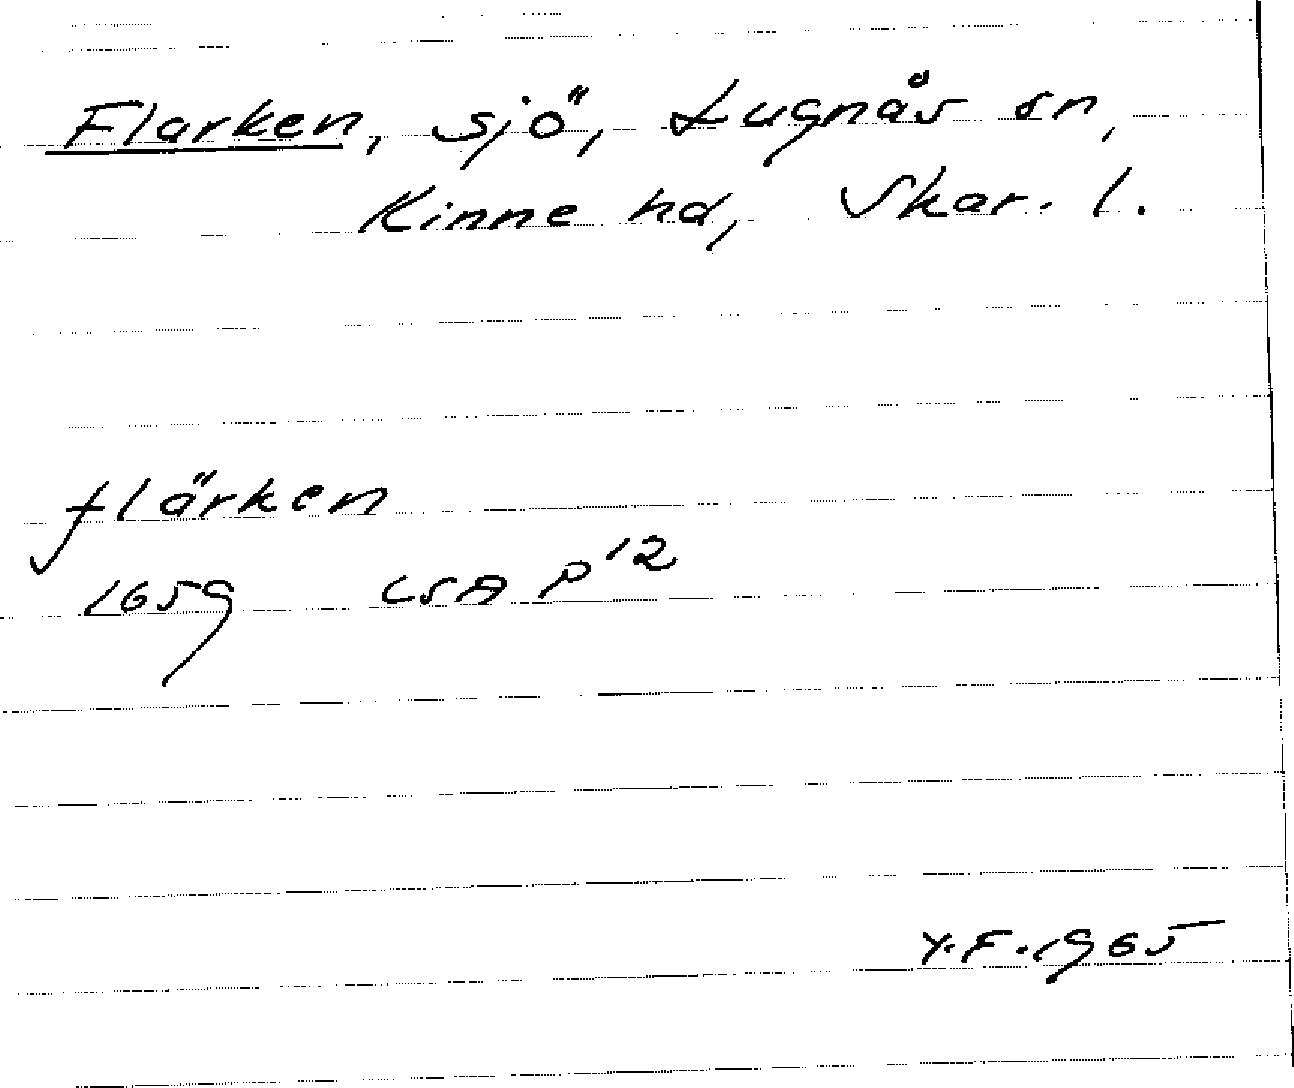 Flarken, sjö, Lugnås sn,
Kinne hd, Skar. l.
flärken
1659 LSA P'2
Y.F. 1965